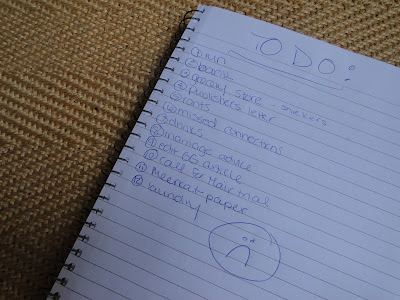 TO DO:
① run
② bank
③ grocery store - skewers
④ publishers letter
⑤ rants
⑥ missed connections
⑦ drinks
⑧ marriage advice
⑨ edit EG article
⑩ call for Hair trial
⑪ Meerkat paper
⑫ laundry